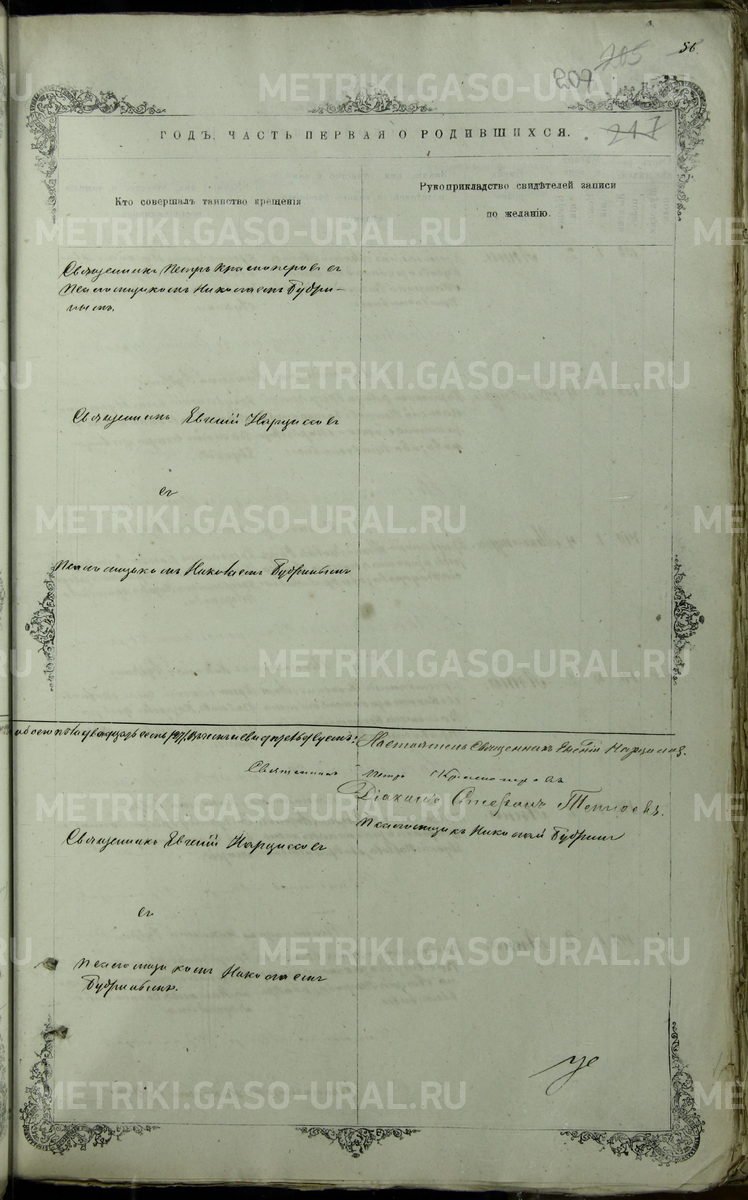 56
705
209
217
ГОДЪ, ЧАСТЬ ПЕРВАЯ О РОДИВШИХСЯ.
Кто совершалъ таинство крещенія
Рукоприкладство свидѣтелей записи
по желанію.
Священникъ Петръ Красноперовъ съ
Псаломщикомъ Николаемъ Бубри-
нымъ.
Священникъ Евгеній Нарциссовъ
съ
Псаломщикомъ Николаемъ Бубринымъ
Настоятель Священникъ Евгеній Нарциссовъ.
Священникъ Петръ Красноперовъ
Діаконъ Стефанъ
Псаломщикъ Николай Бубринъ
Священникъ Евгеній Нарциссовъ
съ
Псаломщикомъ Николаемъ
Бубринымъ.
METRIKI.GASO-URAL.RU